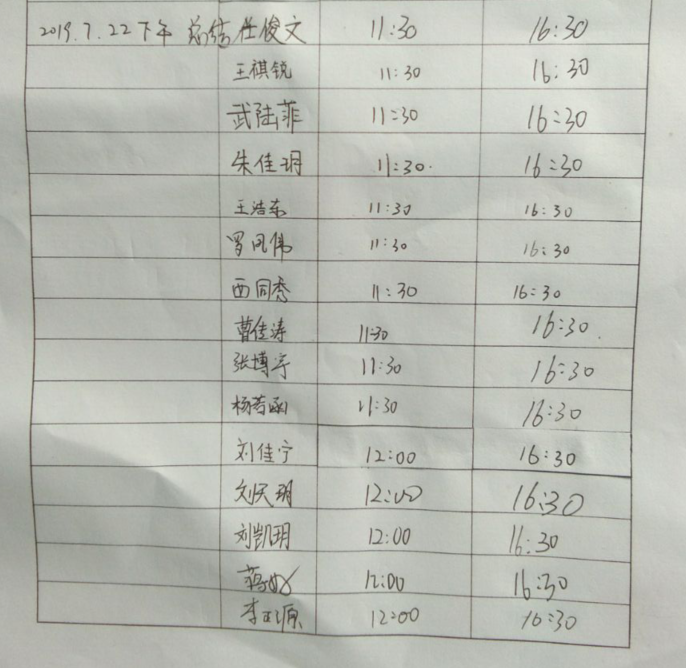 2019.7.22下午 总结 任俊文 11:30 16:30
王祺锐 11:30 16:30
武陆菲 11:30 16:30
朱佳玥 11:30 16:30
王浩东 11:30 16:30
罗凤伟 11:30 16:30
西同秀 11:30 16:30
曹佳涛 11:30 16:30
张博宇 11:30 16:30
杨若函 11:30 16:30
刘佳宁 12:00 16:30
刘天玥 12:00 16:30
刘凯玥 12:00 16:30
蒋 12:00 16:30
李正源 12:00 16:30